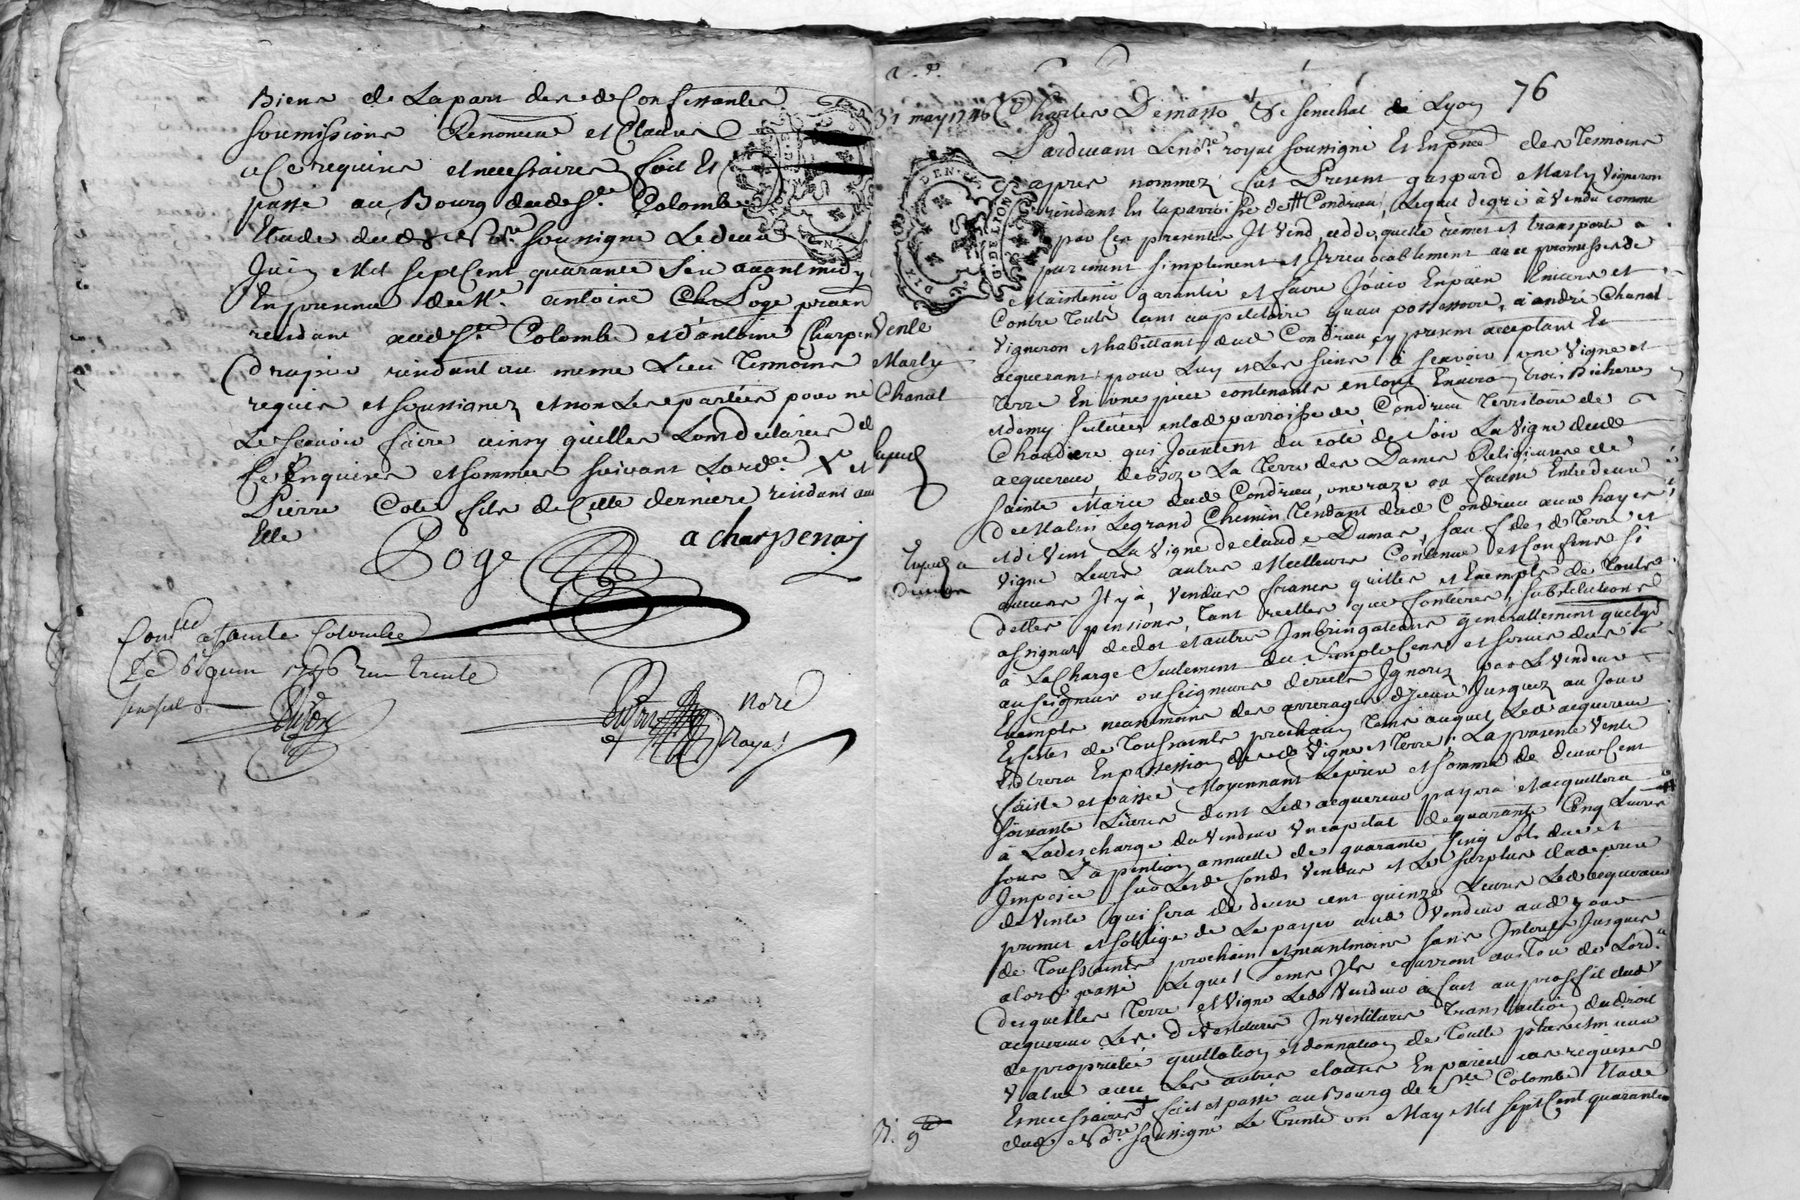 Biens de Lapart desd Confessantes
soumissions Renoncon et Clauses
à Ce requises et necessaires fait Et
passé au Bourg dud Ste Colombe
Etude dud Nore soussigné Le deux
Juin Mil sept Cent quarante Six avant midy
En presence de Mr antoine Poge
residant aud Ste Colombe et d'antoine Charpen
residant au meme Lieu Temoins
requis et soussignez et non Les parties pour ne
Le scavoir faire ainsy qu'elles L'ont declarées de
Ce Enquises et sommées suivant L'ordce et
Pierre Cote fils de Cette derniere residant avec
Elle
Poge
a charpenay
Conlle a Sainte Colombe
Le 6e juin 1746 reçu trente
six sols
Nore
Royal
76
31 may 1746
Charles Demasso Sr senechal de Lyon
Pardevant Le nre royal soussigné Et En pnce des Temoins
apres nommez fut Present gaspard Marly Vigneron
residant En la parroisse de Condrieu, Lequel de gré à Vendu comme
par Ces presentes Il Vend, cedde, quitte remet et transporte
purement simplement et Irrevocablement avec promesse de
Maintenir garantir et faire Jouir En paix Envers et
Contre Touts tant au petitoire qu'au possessoire, à andré Chanal
Vigneron et habittant dud Condrieu cy present acceptant Et
acquerant pour Luy et Les siens à scavoir une Vigne et
Terre En une piece contenants en tout Environ trois Bicherées
et demy situées en lad parroisse de Condrieu Territoire de
Chaudiere qui Joustent du coté de Soir La Vigne dud
acquereur, de Bize La Terre des Dames Religieuses de
Sainte Marie dud Condrieu, une raze ou fausse Entredeux
De Matin Le grand Chemin Tendant dud Condrieu aux hayes
et de Vent La Vigne de claude Dumas, sauf desd Terre et
Vigne Leurs autres Meilleurs Confins et Confins si
aucuns Il y à, Vendus francs quittes et Exempts de Toutes
dettes pensions, tant reelles que foncieres, substitutions
assignats de dot et autres Imbringations generallement quelqu
à La Charge Seulement du Simple Cens et servis dus
au seigneur ou seigneurs directs Ignorez par Le Vendeur
Exempts neantmoins des arrerages d'Iceux Jusques au Jour
Et festes de Toussaints prochain Tems auquel Led acquereur
Entrera En possession desd Vigne et Terre; La presente Vente
faitte et passée Moyennant Le prix et somme de deux Cent
soixante Livres dont Led acquereur payera et acquittera
à La descharge du Vendeur Un capital de quarante Cinq Livres
sous La pention annuelle de quarante Cinq sols due et
Imposée sur Lesd fonds Vendus et Le surplus dud prix
de Vente qui sera de deux cent quinze Livres Led acquereur
promet et s'oblige de Le payer aud Vendeur aud jour
de Toussaints prochain et neantmoins sans Interets Jusques
alors passé Lequel Tems Ils courront au Tau de L'ordce
desquelles Terre et Vigne Led Vendeur à fait au proffit dud
acquereur Les devestitures Investitures translation du droit
de proprieté quittation et donnation de Toutte plus et mieux
Value avec Les autres clauses En pareil cas requises
Et necessaires fait et passé au Bourg de Ste Colombe Etude
dud Nore soussigné Le Trente un May Mil sept Cent quarante
Vente
Marly
Chanal